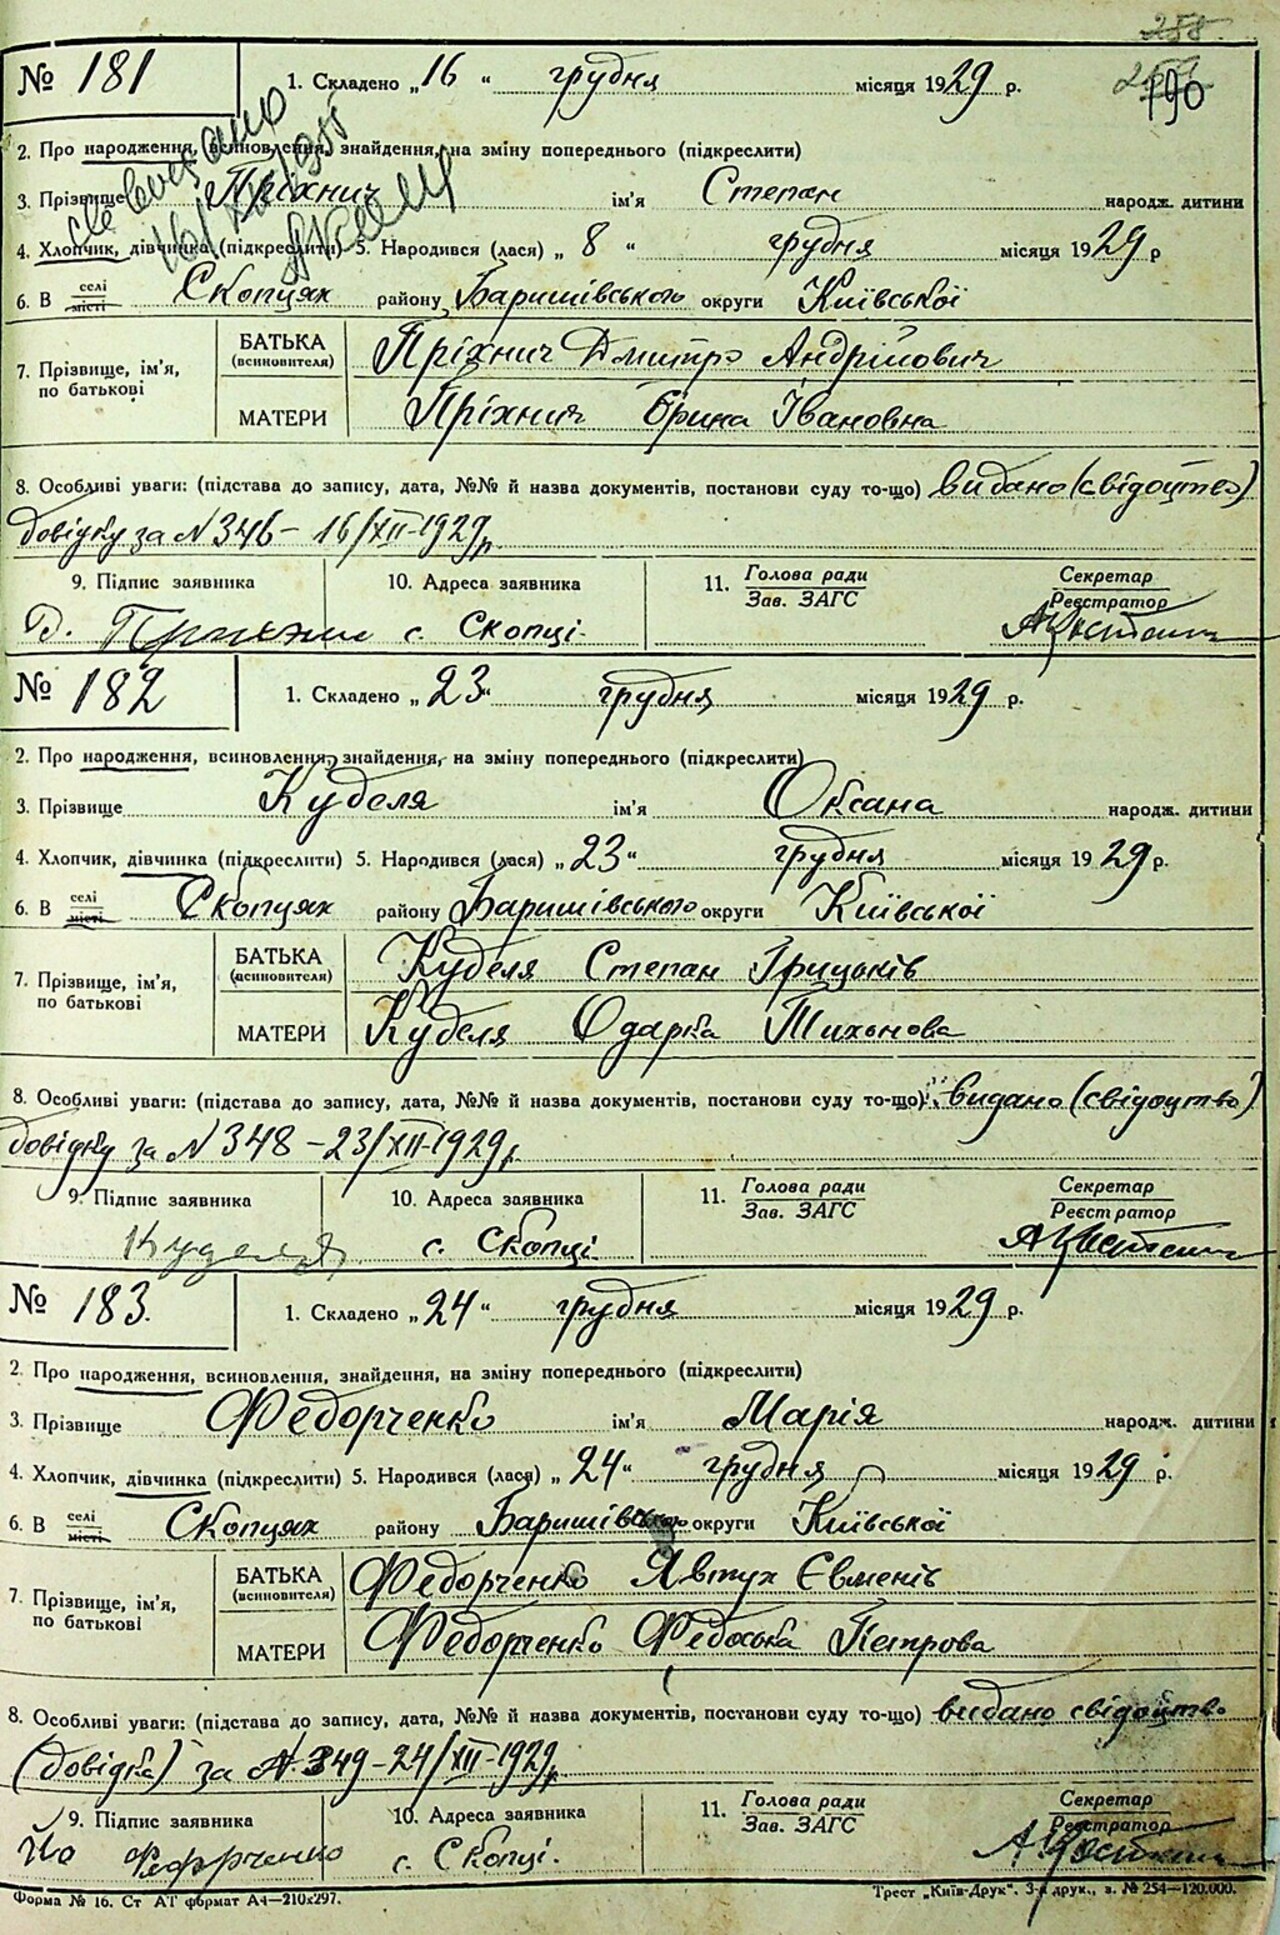 258.
№ 181
1. Складено „16" грудня місяця 1929 р.
190
2. Про народження, всиновлення, знайдення, на зміну попереднього (підкреслити)
3. Прізвище Пріхнич ім'я Степан народж. дитини
4. Хлопчик, дівчинка (підкреслити) 5. Народився (лася) „ 8 " грудня місяця 1929 р
6. В селі місті Скопцях району Баришівського округи Київської
7. Прізвище, ім'я, по батькові
БАТЬКА (всиновителя) Пріхнич Дмитро Андрійович
МАТЕРИ Пріхнич Орина Івановна
8. Особливі уваги: (підстава до запису, дата, №№ й назва документів, постанови суду то-що) видано (свідоцтво)
довідку за N 346 - 16/XII-1929р.
9. Підпис заявника 10. Адреса заявника 11. Голова ради Зав. ЗАГС Секретар Реєстратор
Д. с. Скопці.
№ 182
1. Складено „23" грудня місяця 1929 р.
2. Про народження, всиновлення, знайдення, на зміну попереднього (підкреслити)
3. Прізвище Куделя ім'я Оксана народж. дитини
4. Хлопчик, дівчинка (підкреслити) 5. Народився (лася) „23" грудня місяця 1929 р.
6. В селі місті Скопцях району Баришівського округи Київської
7. Прізвище, ім'я, по батькові
БАТЬКА (всиновителя) Куделя Степан Грицьків
МАТЕРИ Куделя Одарка Тихонова
8. Особливі уваги: (підстава до запису, дата, №№ й назва документів, постанови суду то-що) видано (свідоцтво)
довідку за N 348 - 23/XII-1929р.
9. Підпис заявника 10. Адреса заявника 11. Голова ради Зав. ЗАГС Секретар Реєстратор
Куделя с. Скопці.
№ 183.
1. Складено „24" грудня місяця 1929 р.
2. Про народження, всиновлення, знайдення, на зміну попереднього (підкреслити)
3. Прізвище Федорченко ім'я Марія народж. дитини
4. Хлопчик, дівчинка (підкреслити) 5. Народився (лася) „24" грудня місяця 1929 р.
6. В селі місті Скопцях району Баришівського округи Київської
7. Прізвище, ім'я, по батькові
БАТЬКА (всиновителя) Федорченко Явтух Євменів
МАТЕРИ Федорченко Федоська Петрова
8. Особливі уваги: (підстава до запису, дата, №№ й назва документів, постанови суду то-що) видано свідоцтво
(довідка) за N. 349 - 24/XII-1929р.
9. Підпис заявника 10. Адреса заявника 11. Голова ради Зав. ЗАГС Секретар Реєстратор
с. Скопці.
Форма № 16. Ст АТ формат А4—210x297. Трест „Київ-Друк". 3-я друк., з. № 254—120.000.